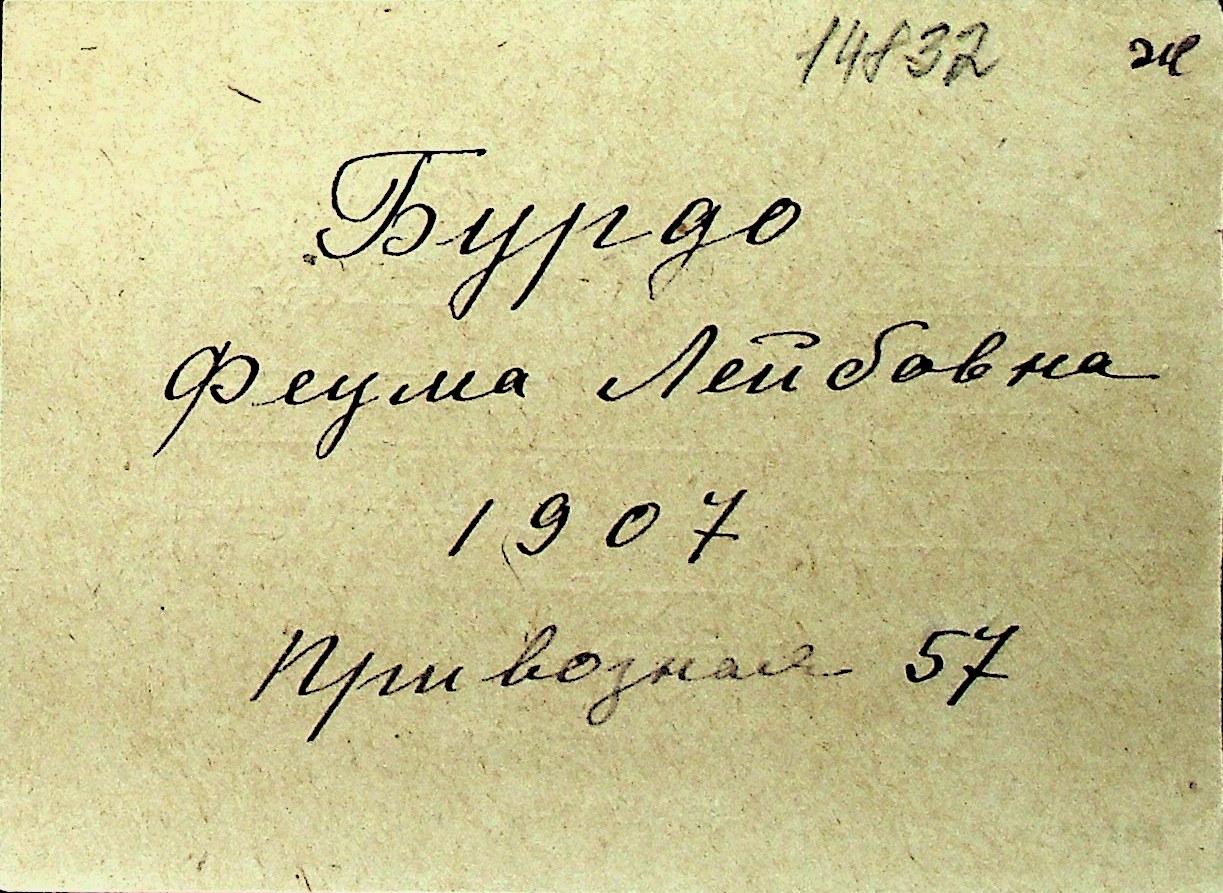 14832 ж
Бурдо
Феума Лейбовна
1907
Привозная 57